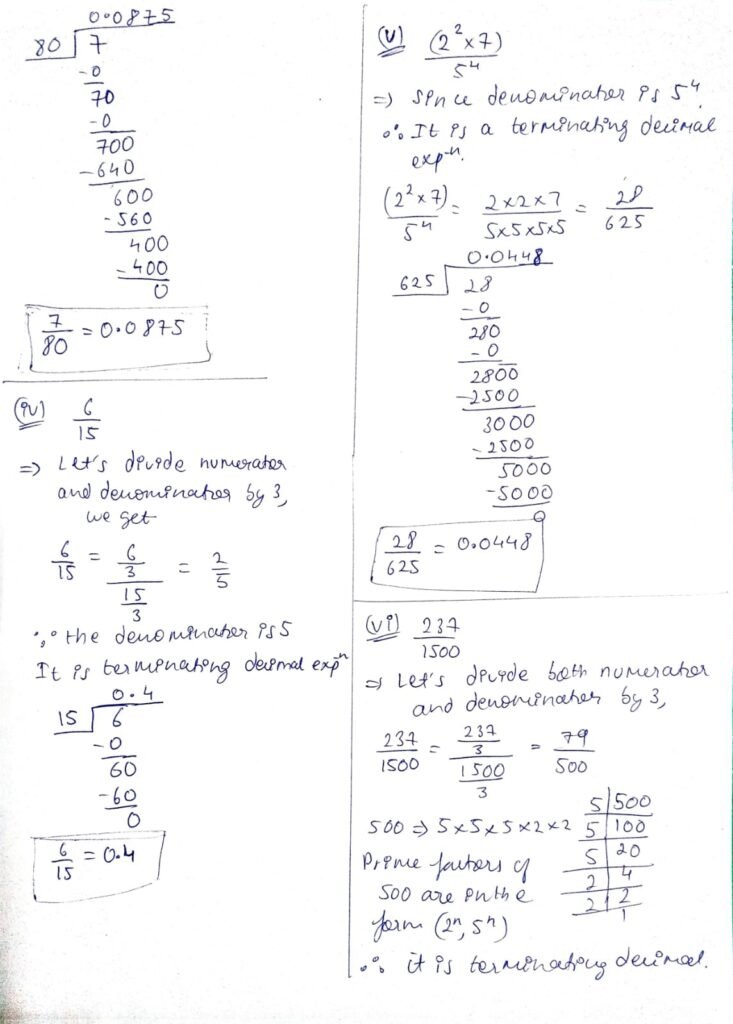 0.0875
80 7
-0
70
-0
700
-640
600
-560
400
-400
0
7/80 = 0.0875
(iv) 6/15
⇒ Let's divide numerator
and denominator by 3,
we get
6/15 = (6/3)/(15/3) = 2/5
∵ the denominator is 5
It is terminating decimal expⁿ
0.4
15 6
-0
60
-60
0
6/15 = 0.4
(v) (2² x 7)/5⁴
⇒ Since denominator is 5⁴,
∴ It is a terminating decimal
exp-ⁿ.
(2² x 7)/5⁴ = 2x2x7/5x5x5x5 = 28/625
0.0448
625 28
-0
280
-0
2800
-2500
3000
-2500
5000
-5000
0
28/625 = 0.0448
(vi) 237/1500
⇒ Let's divide both numerator
and denominator by 3,
237/1500 = (237/3)/(1500/3) = 79/500
500 ⇒ 5x5x5x2x2
Prime factors of
500 are in the
form (2ⁿ, 5ⁿ)
5 500
5 100
5 20
2 4
2 2
1
∴ it is terminating decimal.